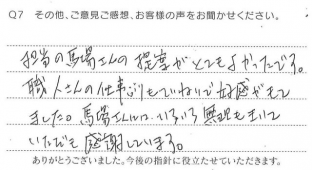 Q7 その他、ご意見ご感想、お客様の声をお聞かせください。
担当の馬場さんの態度がとてもよかったです。
職人さんの仕事ぶりもていねいで好感がもて
ました。馬場さんにはいろいろ無理もきいて
いただき感謝しています。
ありがとうございました。今後の指針に役立たせていただきます。